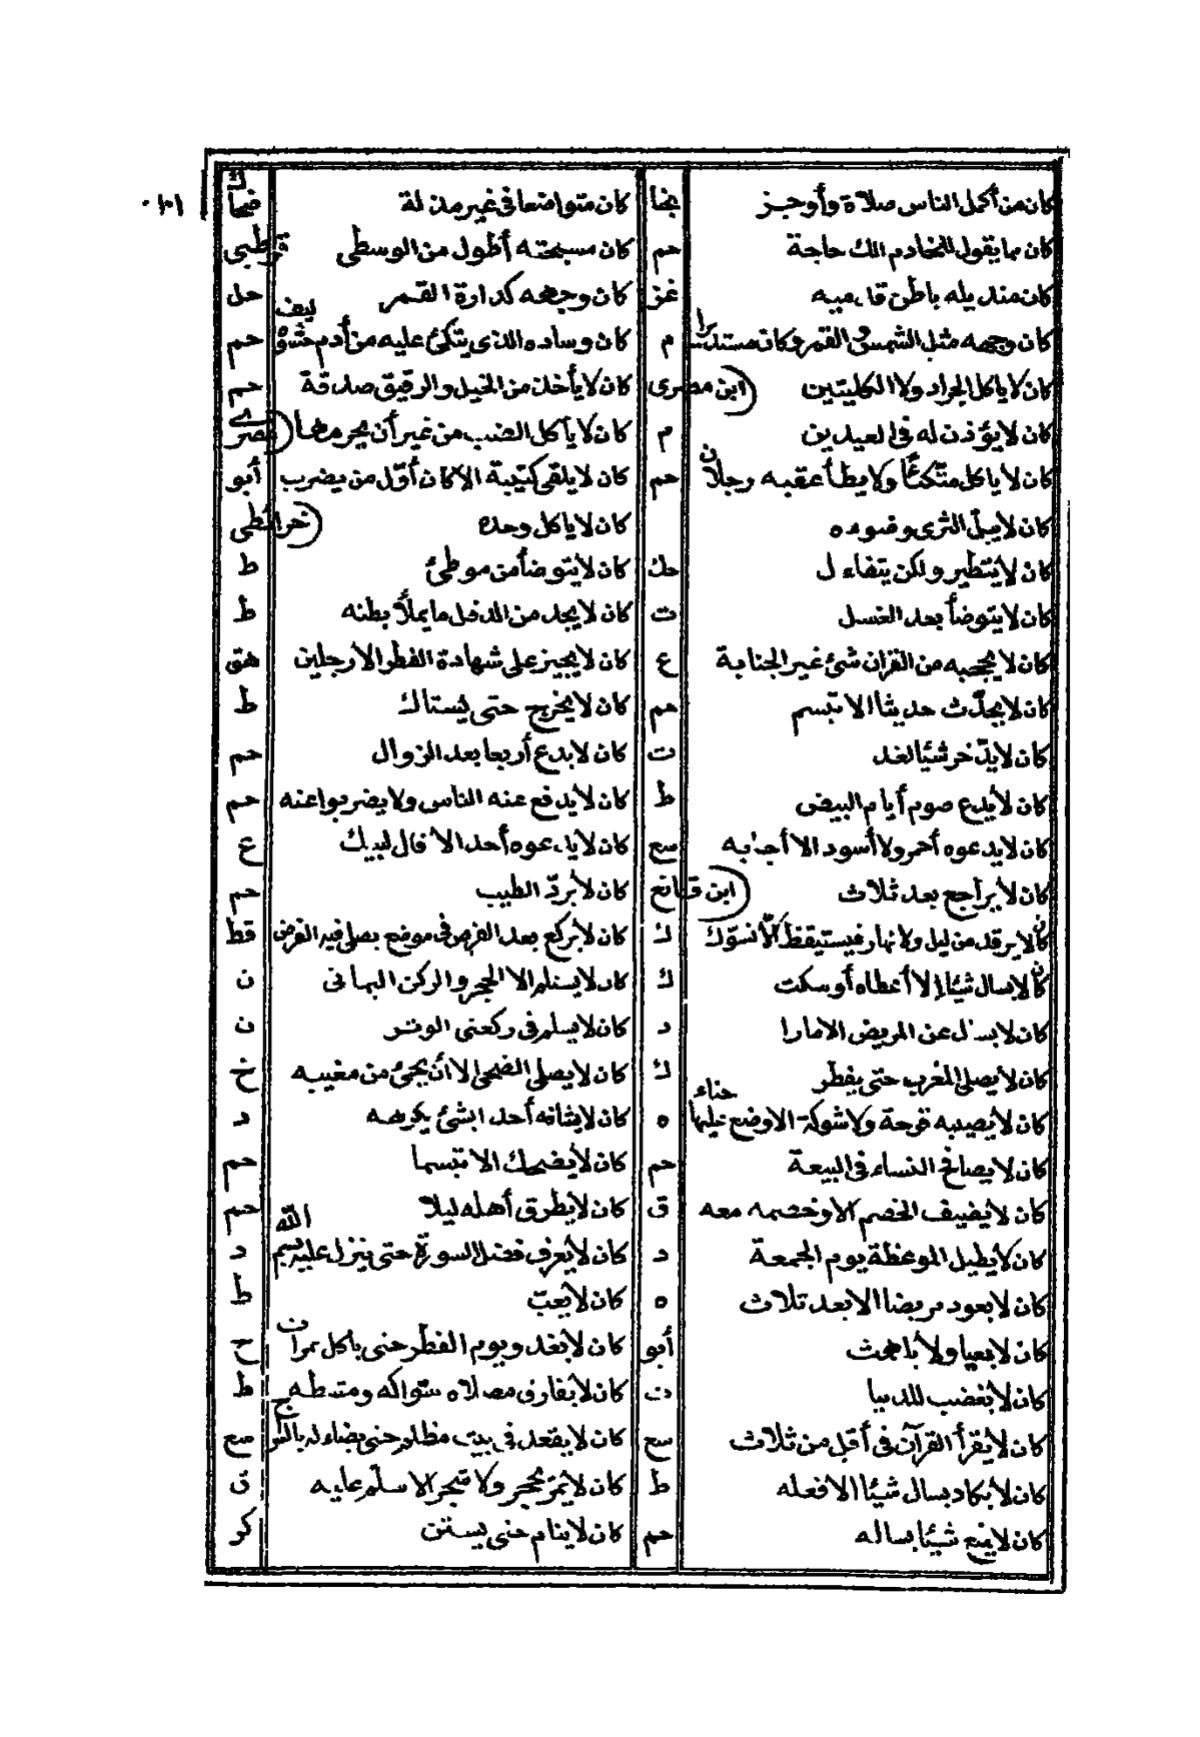 كان من أكمل الناس صلاة وأوجز
كان مما يقول للخادم الك حاجة حم
كان منديله باطن قدميه
كان وجهه مثل الشمس والقمر وكان مستديرا م
كان لا ياكل الجراد ولا الكليتين (ابن مصرى
كان لا يؤذن له فى العيدين م
كان لا ياكل متكئا ولا يطأ عقبه رجلان حم
كان لا يبل الثرى وضوءه
كان لا يتطير ولكن يتفاءل حك
كان لا يتوضأ بعد الغسل ت
كان لا يحجبه من القران شئ غير الجنابة ع
كان لا يحدّث حديثا الا تبسم حم
كان لا يدّخر شيئا لغد ت
كان لا يدع صوم أيام البيض ط
كان لا يدعوه أحمر ولا أسود الا أجابه سع
كان لا يراجع بعد ثلاث (ابن قانع
كان لا يرقد من ليل ولا نهار فيستيقظ الا تسوّك
كان لا يسال شيئا إلا أعطاه أو سكت ك
كان لا يسال عن المريض الا مارا د
كان لا يصلى المغرب حتى يفطر ك
كان لا يصيبه قرحة ولا شوكة الا وضع عليها حناء ه
كان لا يصافح النساء فى البيعة حم
كان لا يضيف الخصم الا وخصمه معه ق
كان لا يطيل الموعظة يوم الجمعة د
كان لا يعود مريضا الا بعد ثلاث ه
كان لا يغضب للدنيا ت
كان لا يقرأ القرآن فى أقل من ثلاث سع
كان لا يكاد يسال شيئا الا فعله ط
كان لا يمنع شيئا يساله حم
كان متواضعا فى غير مذلة ضحاك
كان مسبحته أطول من الوسطى قرطبى
كان وجهه كدارة القمر حل
كان وساده الذى يتكئ عليه من أدم حشوه ليف حم
كان لا يأخذ من الخيل والرقيق صدقة حم
كان لا يأكل الضب من غير أن يحرمها (مصرى
كان لا يلقى كتيبة الا كان أوّل من يضرب أبو
كان لا ياكل وحده (خرائطى
كان لا يتوضأ من موطئ ط
كان لا يجد من الدقل ما يملأ بطنه ط
كان لا يجيز على شهادة الفطر الا رجلين هق
كان لا يخرج حتى يستاك ط
كان لا يدع أربعا بعد الزوال حم
كان لا يدفع عنه الناس ولا يضربوا عنه حم
كان لا يدعوه أحد الا قال لبيك ع
كان لا يردّ الطيب حم
كان لا يركع بعد الفرض فى موضع يصلى فيه الفرض قط
كان لا يستلم الا الحجر والركن اليمانى ن
كان لا يسلم فى ركعتى الوتر ن
كان لا يصلى الضحى الا أن يجئ من مغيبه خ
كان لا يشافه أحدا بشئ يكرهه د
كان لا يضحك الا تبسما حم
كان لا يطرق أهله ليلا حم
كان لا يعرف فضل السورة حتى ينزل عليه بسم الله د
كان لا يعبّ ط
كان لا يغدو يوم الفطر حتى ياكل تمرات ح
كان لا يفارق مصلاه سواكه ومشطه ط
كان لا يقعد فى بيت مظلم حتى يضاء له بالسراج سع
كان لا يمرّ بحجر ولا شجر الا سلّم عليه ق
كان لا ينام حتى يستن كر